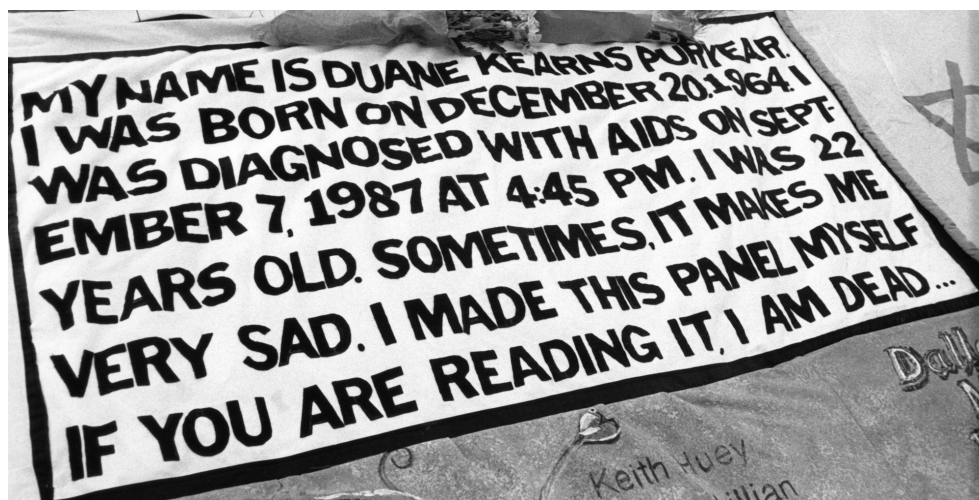 MY NAME IS DUANE KEARNS PURYEAR.
I WAS BORN ON DECEMBER 20,1964. I
WAS DIAGNOSED WITH AIDS ON SEPT-
EMBER 7, 1987 AT 4:45 PM. I WAS 22
YEARS OLD. SOMETIMES, IT MAKES ME
VERY SAD. I MADE THIS PANEL MYSELF
IF YOU ARE READING IT, I AM DEAD...
Keith Huey